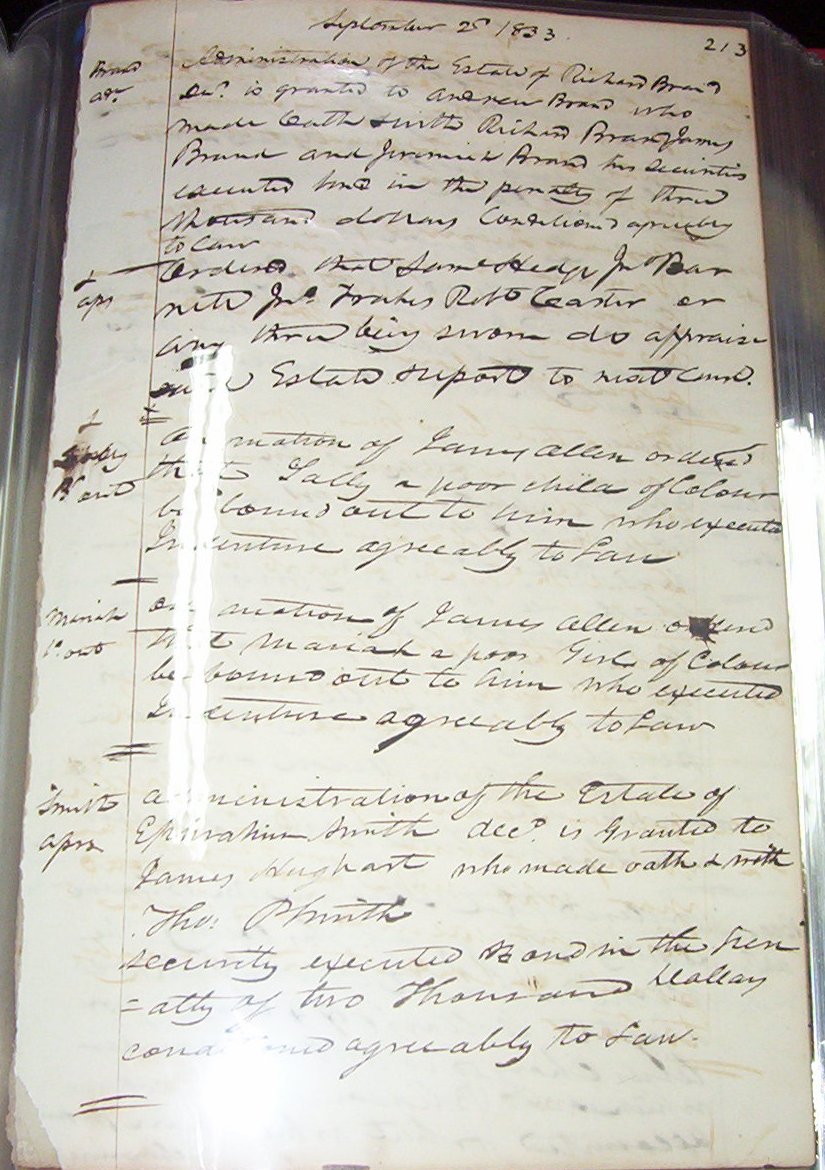 September 2d 1833.
213
Brand
adr.
Administration of the Estate of Richard Brand
Decd. is granted to Andrew Brand who
made Oath & with Richard Brand James
Brand and Jeremiah Brand his securities
executed bond in the penalty of three
thousand dollars Conditioned agreeably
to Law
&
aprs
Ordered that Saml Hedge Jno. Bar
nett Jno. Frakes Robt Easter or
any three being sworn do appraise
said Estate & report to next Court.
Sally
Bd. out
On motion of James Allen ordered
that Sally a poor child of Colour
be bound out to him who executed
Indenture agreeably to Law
Mariah
Bd. out
On motion of James Allen ordered
that Mariah a poor Girl of Colour
be bound out to him who executed
Indenture agreeably to Law
Smith
aprs
administration of the Estate of
Ephrahim Smith decd. is Granted to
James Hughart who made oath & with
Thos. P Smith
security executed Bond in the pen
=alty of two Thousand Dollars
conditioned agreeably to Law.